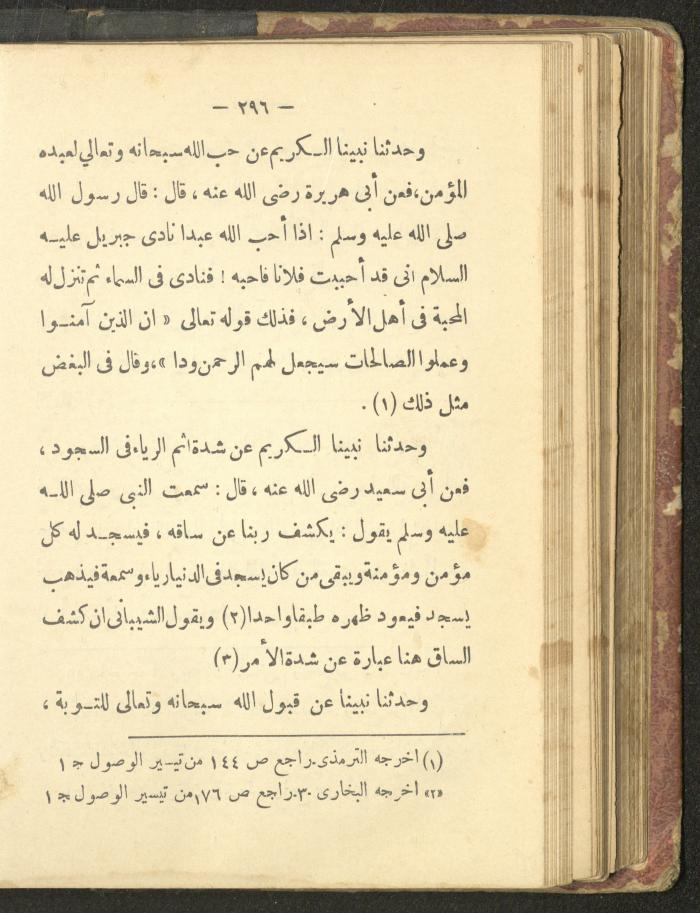 — ٢٩٦ —
وحدثنا نبينا الـكريم عن حب الله سبحانه وتعالي لعبده
المؤمن،فعن أبى هريرة رضى الله عنه ، قال : قال رسول الله
صلى الله عليه وسلم : اذا أحب الله عبدا نادى جبريل عليـه
السلام انى قد أحببت فلانا فاحبه ! فنادى فى السماء ثم تنزل له
المحبة فى أهل الأرض ، فذلك قوله تعالى « ان الذين آمنـوا
وعملوا الصالحات سيجعل لهم الرحمن ودا »،وقال فى البغض
مثل ذلك (١) .
وحدثنا نبينا الـكريم عن شدة اثم الرياء فى السجود ،
فعن أبى سعيد رضى الله عنه ، قال : سمعت النبى صلى اللـه
عليه وسلم يقول : يكشف ربنا عن ساقه ، فيسجـد له كل
مؤمن ومؤمنة ويبقى من كان يسجد فى الدنيا رياء وسمعة فيذهب
يسجد فيعود ظهره طبقا واحدا (٢) ويقول الشيبانى ان كشف
الساق هنا عبارة عن شدة الأمر (٣)
وحدثنا نبينا عن قبول الله سبحانه وتعالى للتـوبة ،
(١) اخرجه الترمذى.راجع ص ١٤٤ من تيسير الوصول ج ١
«٢» اخرجه البخارى .٣.راجع ص ١٧٦ من تيسير الوصول ج ١